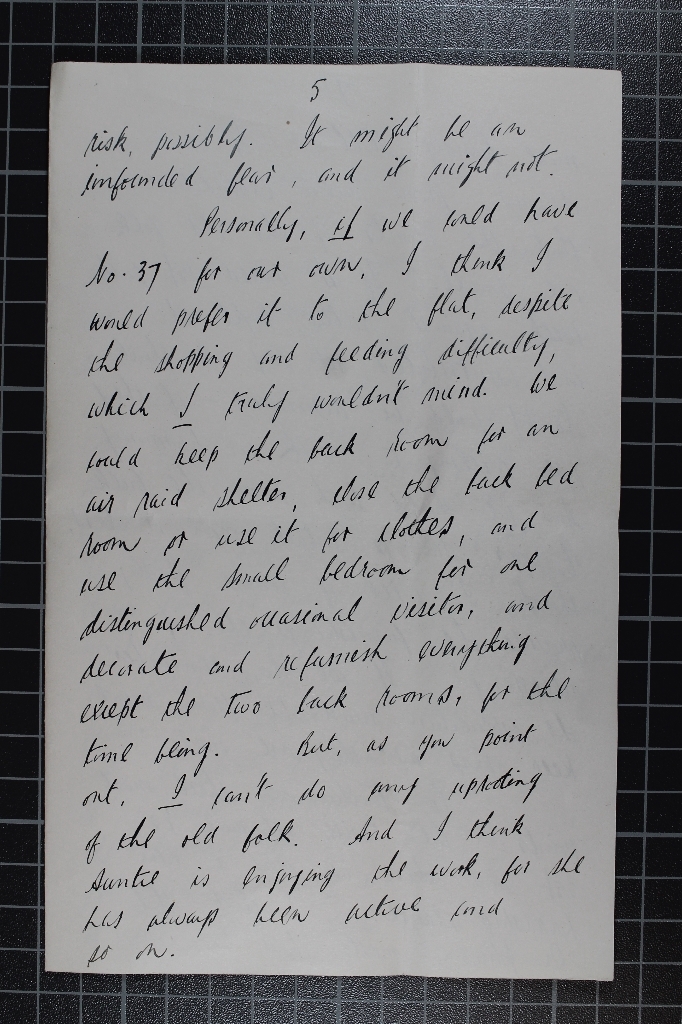 5
risk, possibly. It might be an
unfounded fear, and it might not.
Personally, if we could have
No. 37 for our own, I think I
would prefer it to the flat, despite
the shopping and feeding difficulty,
which I truly wouldn't mind. We
could keep the back room for an
air raid shelter, close the back bed
room or use it for clothes, and
use the small bedroom for one
distinguished occasional visitor, and
decorate and refurnish everything
except the two back rooms, for the
time being. But, as you point
out, I can't do any uprooting
of the old folk. And I think
Auntie is enjoying the work, for she
has always been active and
so on.